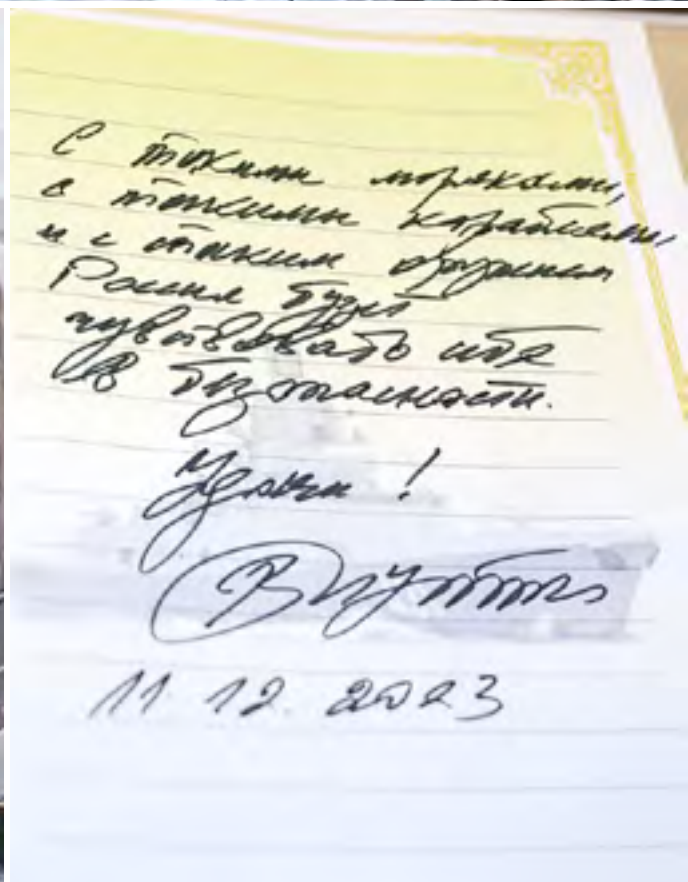 С такими моряками,
с такими кораблями,
и с таким оружием
Россия будет
чувствовать себя
в безопасности.
Удачи!
В Путин
11. 12. 2023